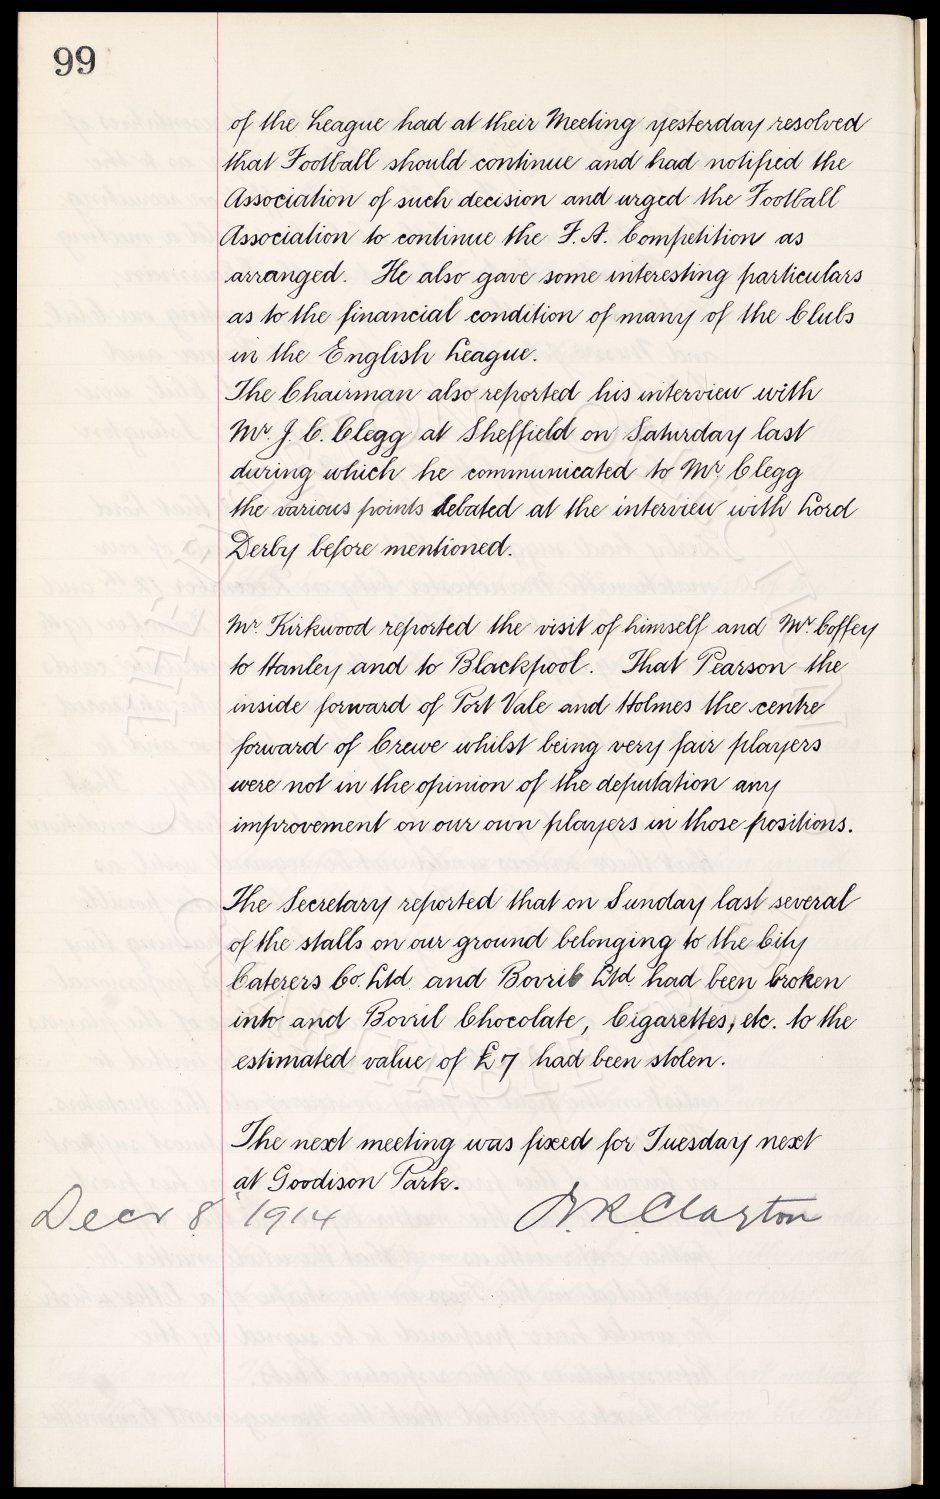 99
of the League had at their Meeting yesterday resolved
that Football should continue and had notified the
Association of such decision and urged the Football
Association to continue the F.A. Competition as
arranged. He also gave some interesting particulars
as to the financial condition of many of the Clubs
in the English League.
The Chairman also reported his interview with
Mr. J. C. Clegg at Sheffield on Saturday last
during which he communicated to Mr. Clegg
the various points debated at the interview with Lord
Derby before mentioned.
Mr. Kirkwood reported the visit of himself and Mr. Coffey
to Hanley and to Blackpool. That Pearson the
inside forward of Port Vale and Holmes the centre
forward of Crewe whilst being very fair players
were not in the opinion of the deputation any
improvement on our own players in those positions.
The Secretary reported that on Sunday last several
of the stalls on our ground belonging to the City
Caterers Co. Ltd. and Bovril Ltd. had been broken
into and Bovril Chocolate, Cigarettes, etc. to the
estimated value of £7 had been stolen.
The next meeting was fixed for Tuesday next
at Goodison Park.
Decr 8 1914 W. R. Clayton